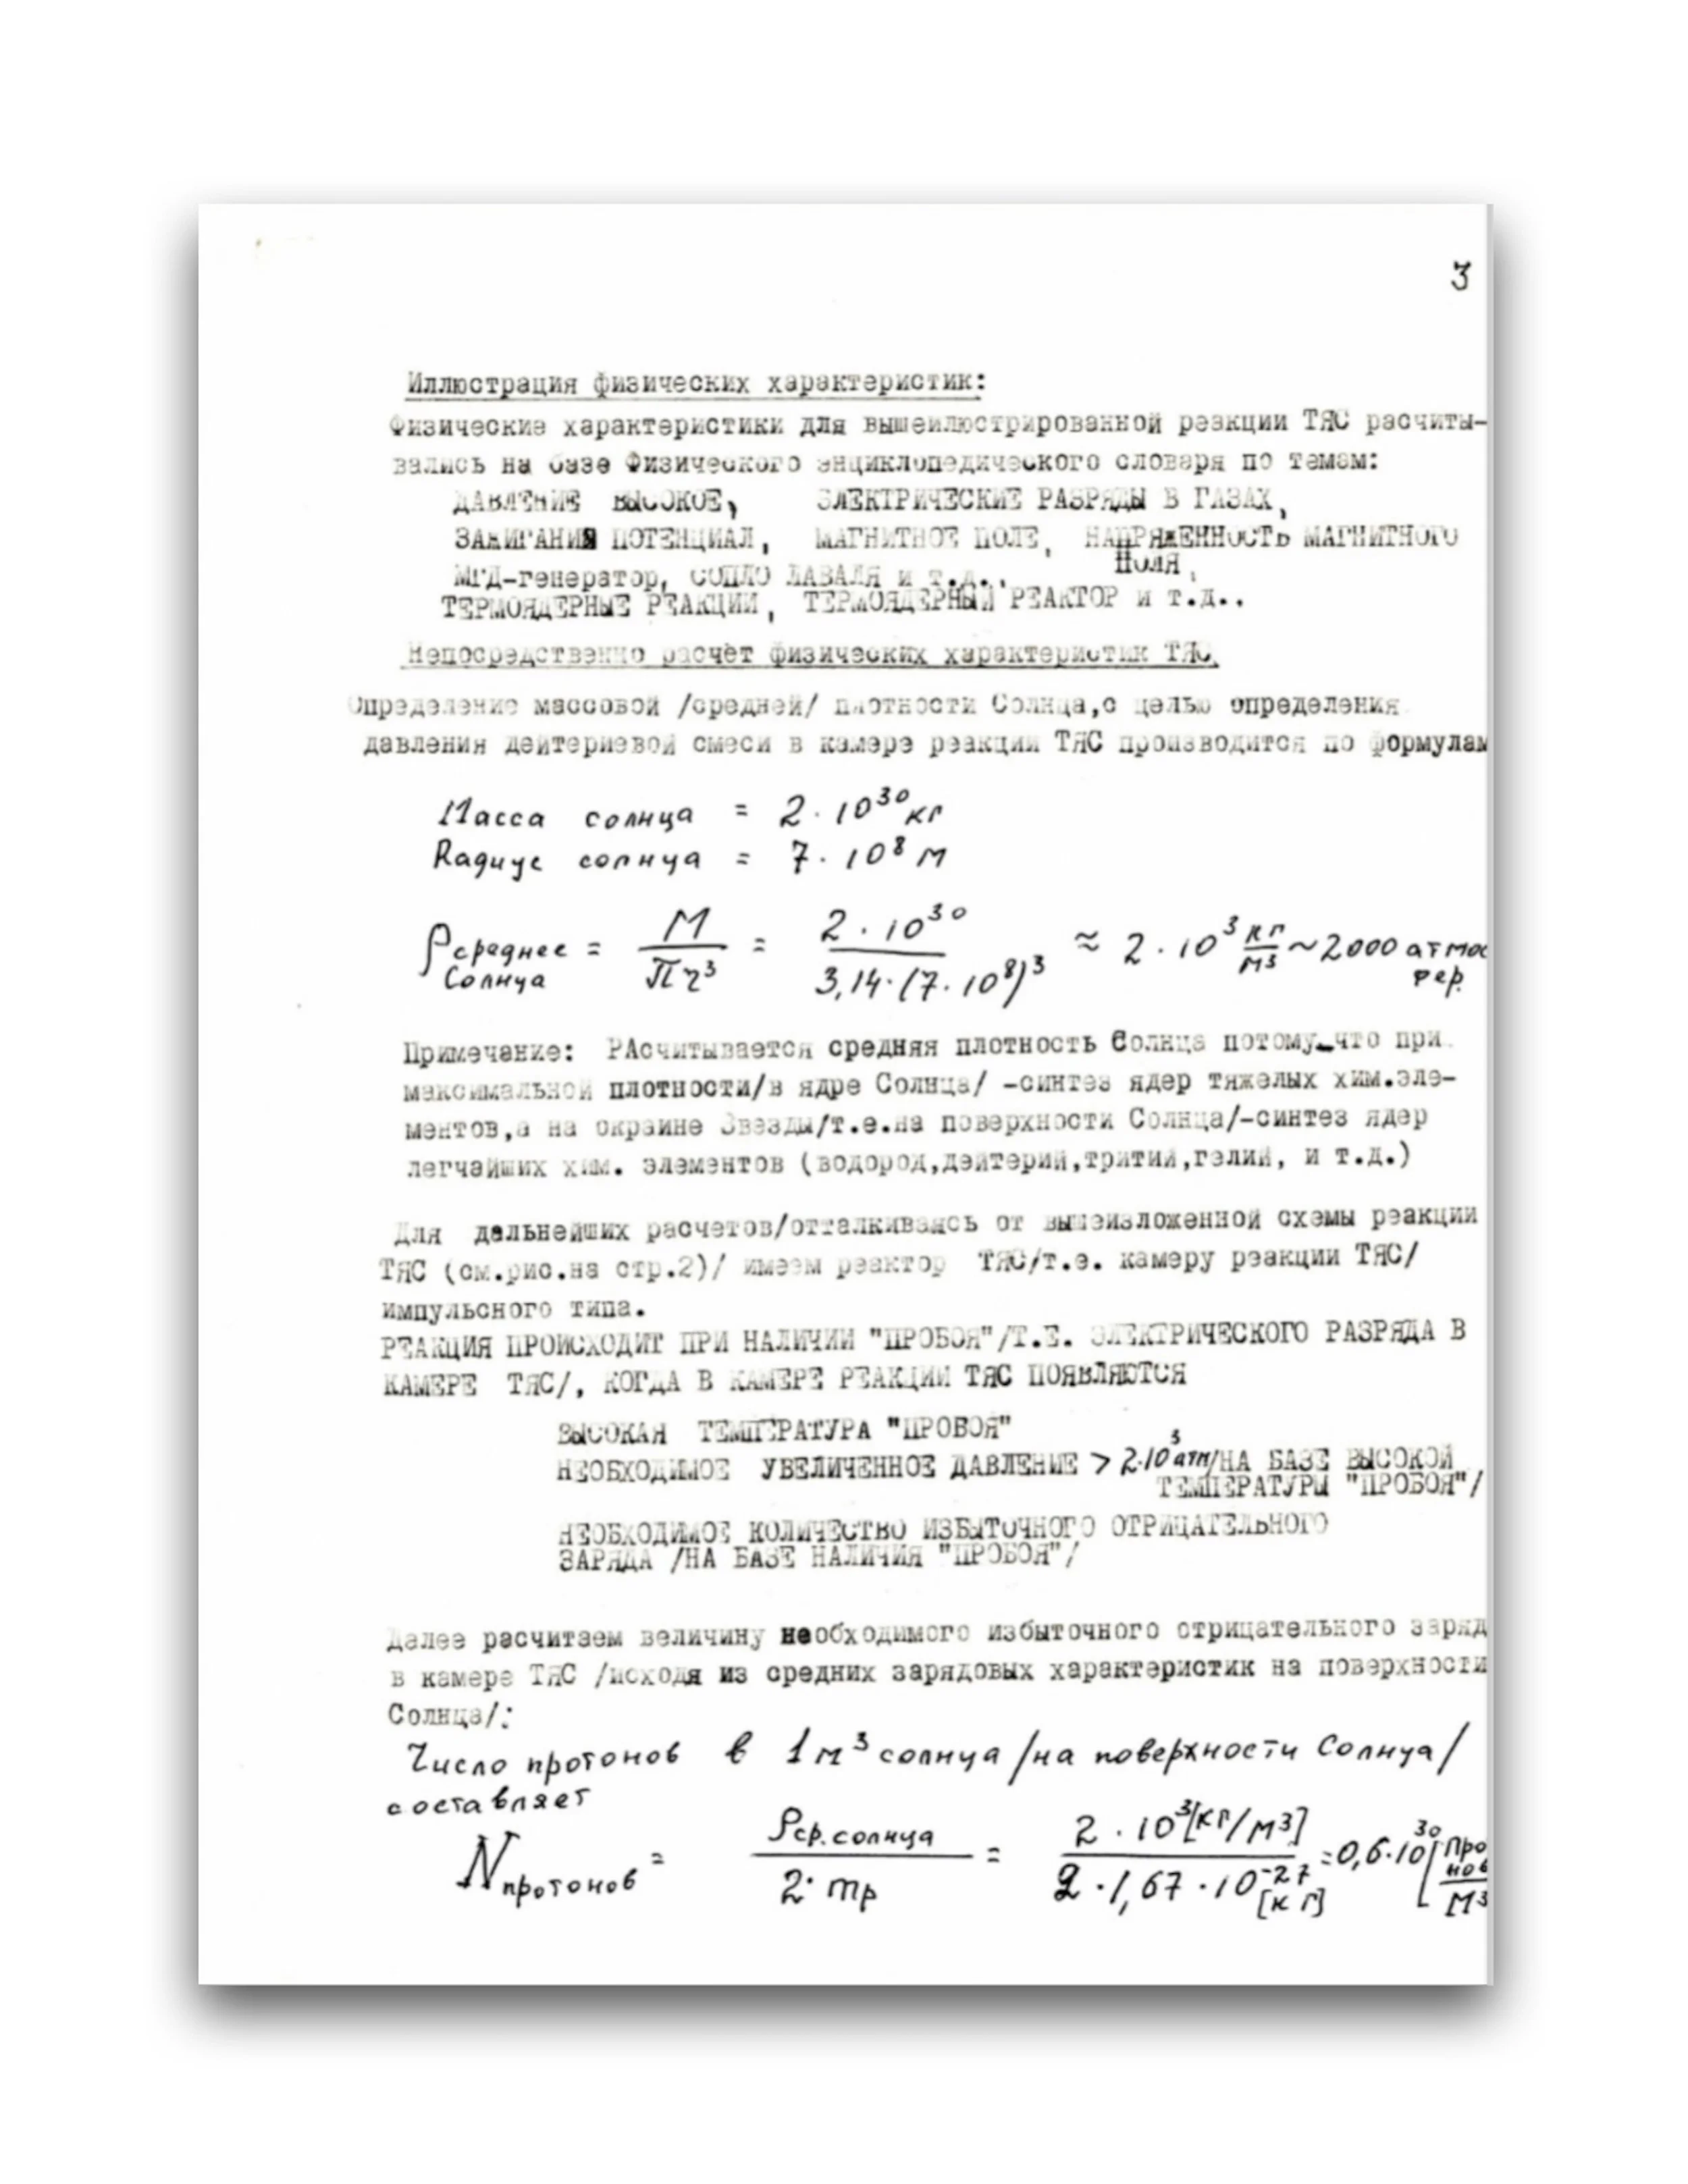 3
Иллюстрация физических характеристик:
Физические характеристики для вышеилюстрированной реакции ТЯС расчиты-
вались на базе Физического энциклопедического словаря по темам:
ДАВЛЕНИЕ ВЫСОКОЕ, ЭЛЕКТРИЧЕСКИЕ РАЗРЯДЫ В ГАЗАХ,
ЗАЖИГАНИЯ ПОТЕНЦИАЛ, МАГНИТНОЕ ПОЛЕ, НАПРЯЖЕННОСТЬ МАГНИТНОГО
ПОЛЯ,
МГД-генератор, СОПЛО ЛАВАЛЯ и т.д.,
ТЕРМОЯДЕРНЫЕ РЕАКЦИИ, ТЕРМОЯДЕРНЫЙ РЕАКТОР и т.д..
Непосредственно расчёт физических характеристик ТЯС.
Определение массовой /средней/ плотности Солнца,с целью определения
давления дейтериевой смеси в камере реакции ТЯС производится по формулам
Масса солнца = 2 · 10³⁰ кг
Радиус солнца = 7 · 10⁸ м
ρ среднее Солнца = M / πr³ = 2 · 10³⁰ / 3,14·(7·10⁸)³ ≈ 2 · 10³ кг/м³ ~ 2000 атмос
фер.
Примечание: РАсчитывается средняя плотность Солнца потому-что при
максимальной плотности/в ядре Солнца/ -синтез ядер тяжелых хим.эле-
ментов,а на окраине Звезды/т.е.на поверхности Солнца/-синтез ядер
легчайших хим. элементов (водород,дейтерий,тритий,гелий, и т.д.)
Для дальнейших расчетов/отталкиваясь от вышеизложенной схемы реакции
ТЯС (см.рис.на стр.2)/ имеем реактор ТЯС/т.е. камеру реакции ТЯС/
импульсного типа.
РЕАКЦИЯ ПРОИСХОДИТ ПРИ НАЛИЧИИ "ПРОБОЯ"/Т.Е. ЭЛЕКТРИЧЕСКОГО РАЗРЯДА В
КАМЕРЕ ТЯС/, КОГДА В КАМЕРЕ РЕАКЦИИ ТЯС ПОЯВЛЯЮТСЯ
ВЫСОКАЯ ТЕМПЕРАТУРА "ПРОБОЯ"
НЕОБХОДИМОЕ УВЕЛИЧЕННОЕ ДАВЛЕНИЕ > 2·10³ атм/НА БАЗЕ ВЫСОКОЙ
ТЕМПЕРАТУРЫ "ПРОБОЯ"/
НЕОБХОДИМОЕ КОЛИЧЕСТВО ИЗБЫТОЧНОГО ОТРИЦАТЕЛЬНОГО
ЗАРЯДА /НА БАЗЕ НАЛИЧИЯ "ПРОБОЯ"/
Далее расчитаем величину необходимого избыточного отрицательного заряд
в камере ТЯС /исходя из средних зарядовых характеристик на поверхности
Солнца/:
Число протонов в 1 м³ солнца /на поверхности Солнца/
составляет
N протонов = ρср. солнца / 2·mp = 2 · 10³ [кг/м³] / 2 · 1,67 · 10⁻²⁷ [кг] = 0,6·10³⁰ [Про
нов
м³